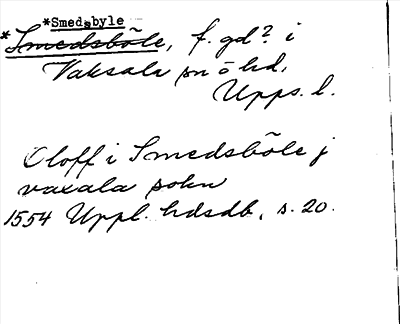 *Smedsbyle
*Smedsböle, f. gd? i
Vaksala sn o hd,
Upps. l.
Oloff i Smedsböle j
vaxala sokn
1554 Uppl. hdsdb, s. 20.